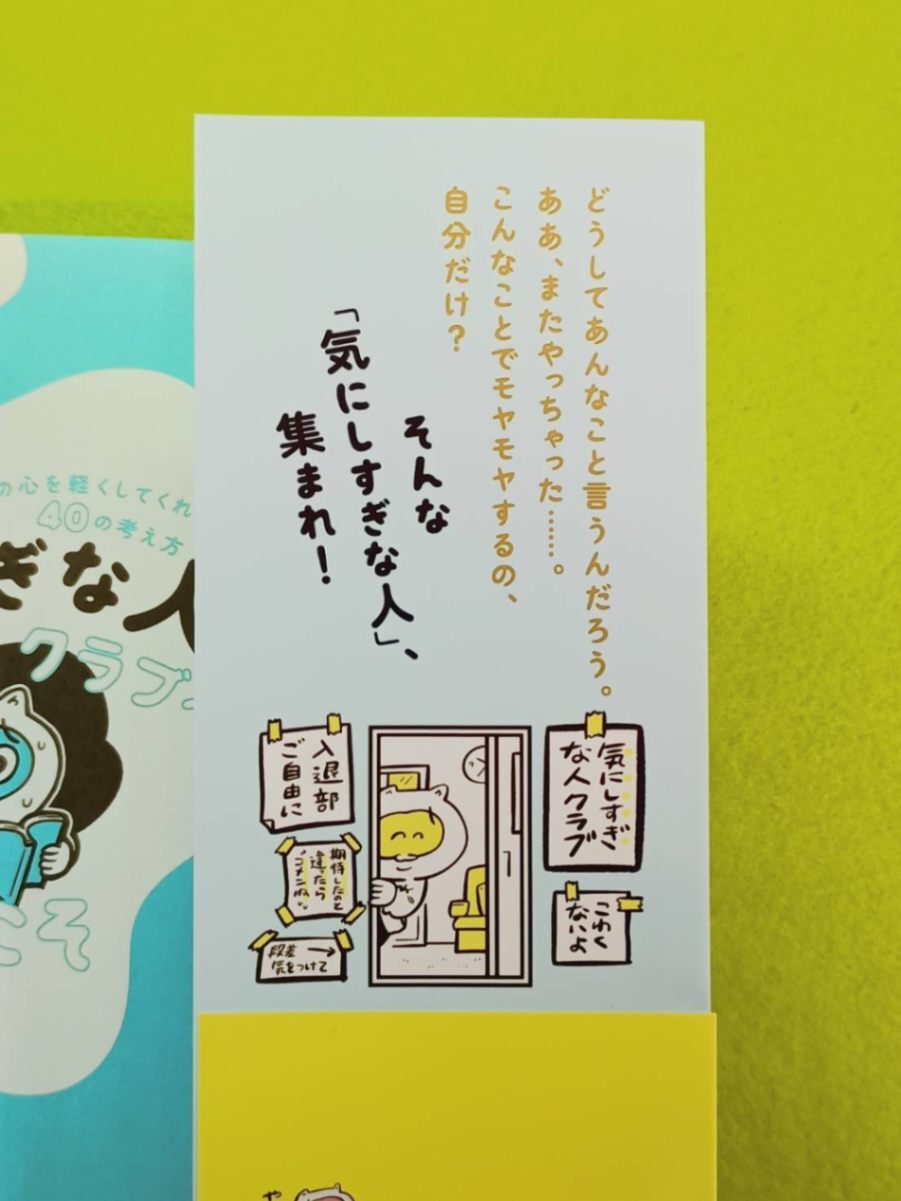 どうしてあんなこと言うんだろう。
ああ、またやっちゃった……。
こんなことでモヤモヤするの、
自分だけ？
そんな
「気にしすぎな人」、
集まれ！
気にしすぎ
な人クラブ
こわく
ないよ
入退部
ご自由に
期待したのと
違ったら
ゴメンね。
段差→
気をつけて
の心を軽くしてくれ
40の考え方
ぎな人
クラブ
こそ
や